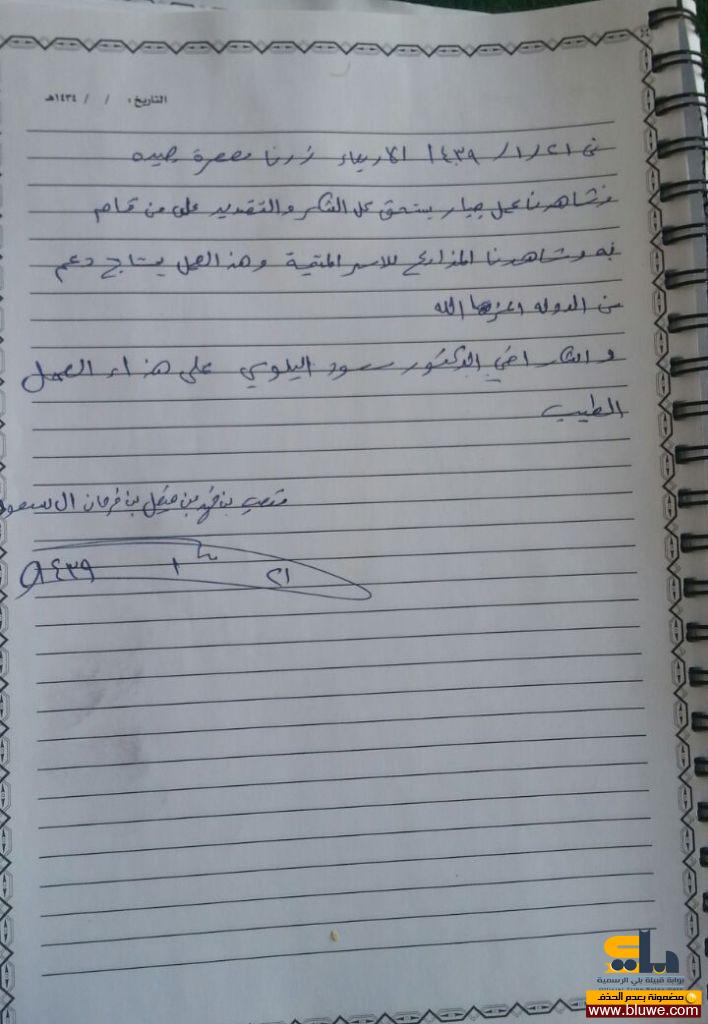 التاريخ: / / ١٤٣٤هـ
في ٢١/١/١٤٣٩ الاربعاء زرنا معصرة بصيده
وشاهدنا عمل جبار يستحق كل الشكر والتقدير على من قام
به وشاهدنا المزارع للاسر وهذا العمل يحتاج دعم
من الدوله اعزها الله
والشكر اخي الدكتور سعود البلوي على هذا العمل
الطيب
متعب بن فهد بن فيصل بن فرحان ال سعود
٢١ ١ ١٤٣٩
بلي
بوابة قبيلة بلي الرسمية
مضمونة بعدم الحذف
www.bluwe.com